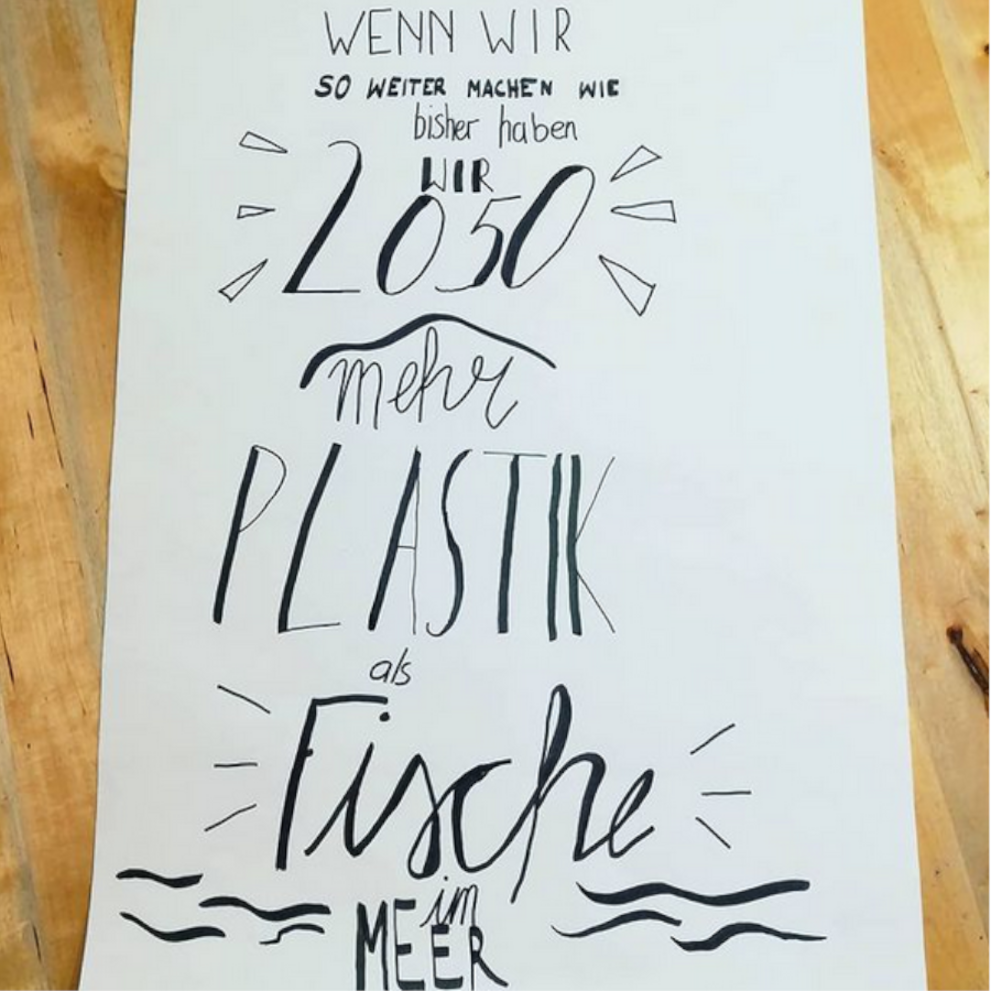 WENN WIR
SO WEITER MACHEN WIE
bisher haben
WIR
2050
mehr
PLASTIK
als
Fische
im
MEER